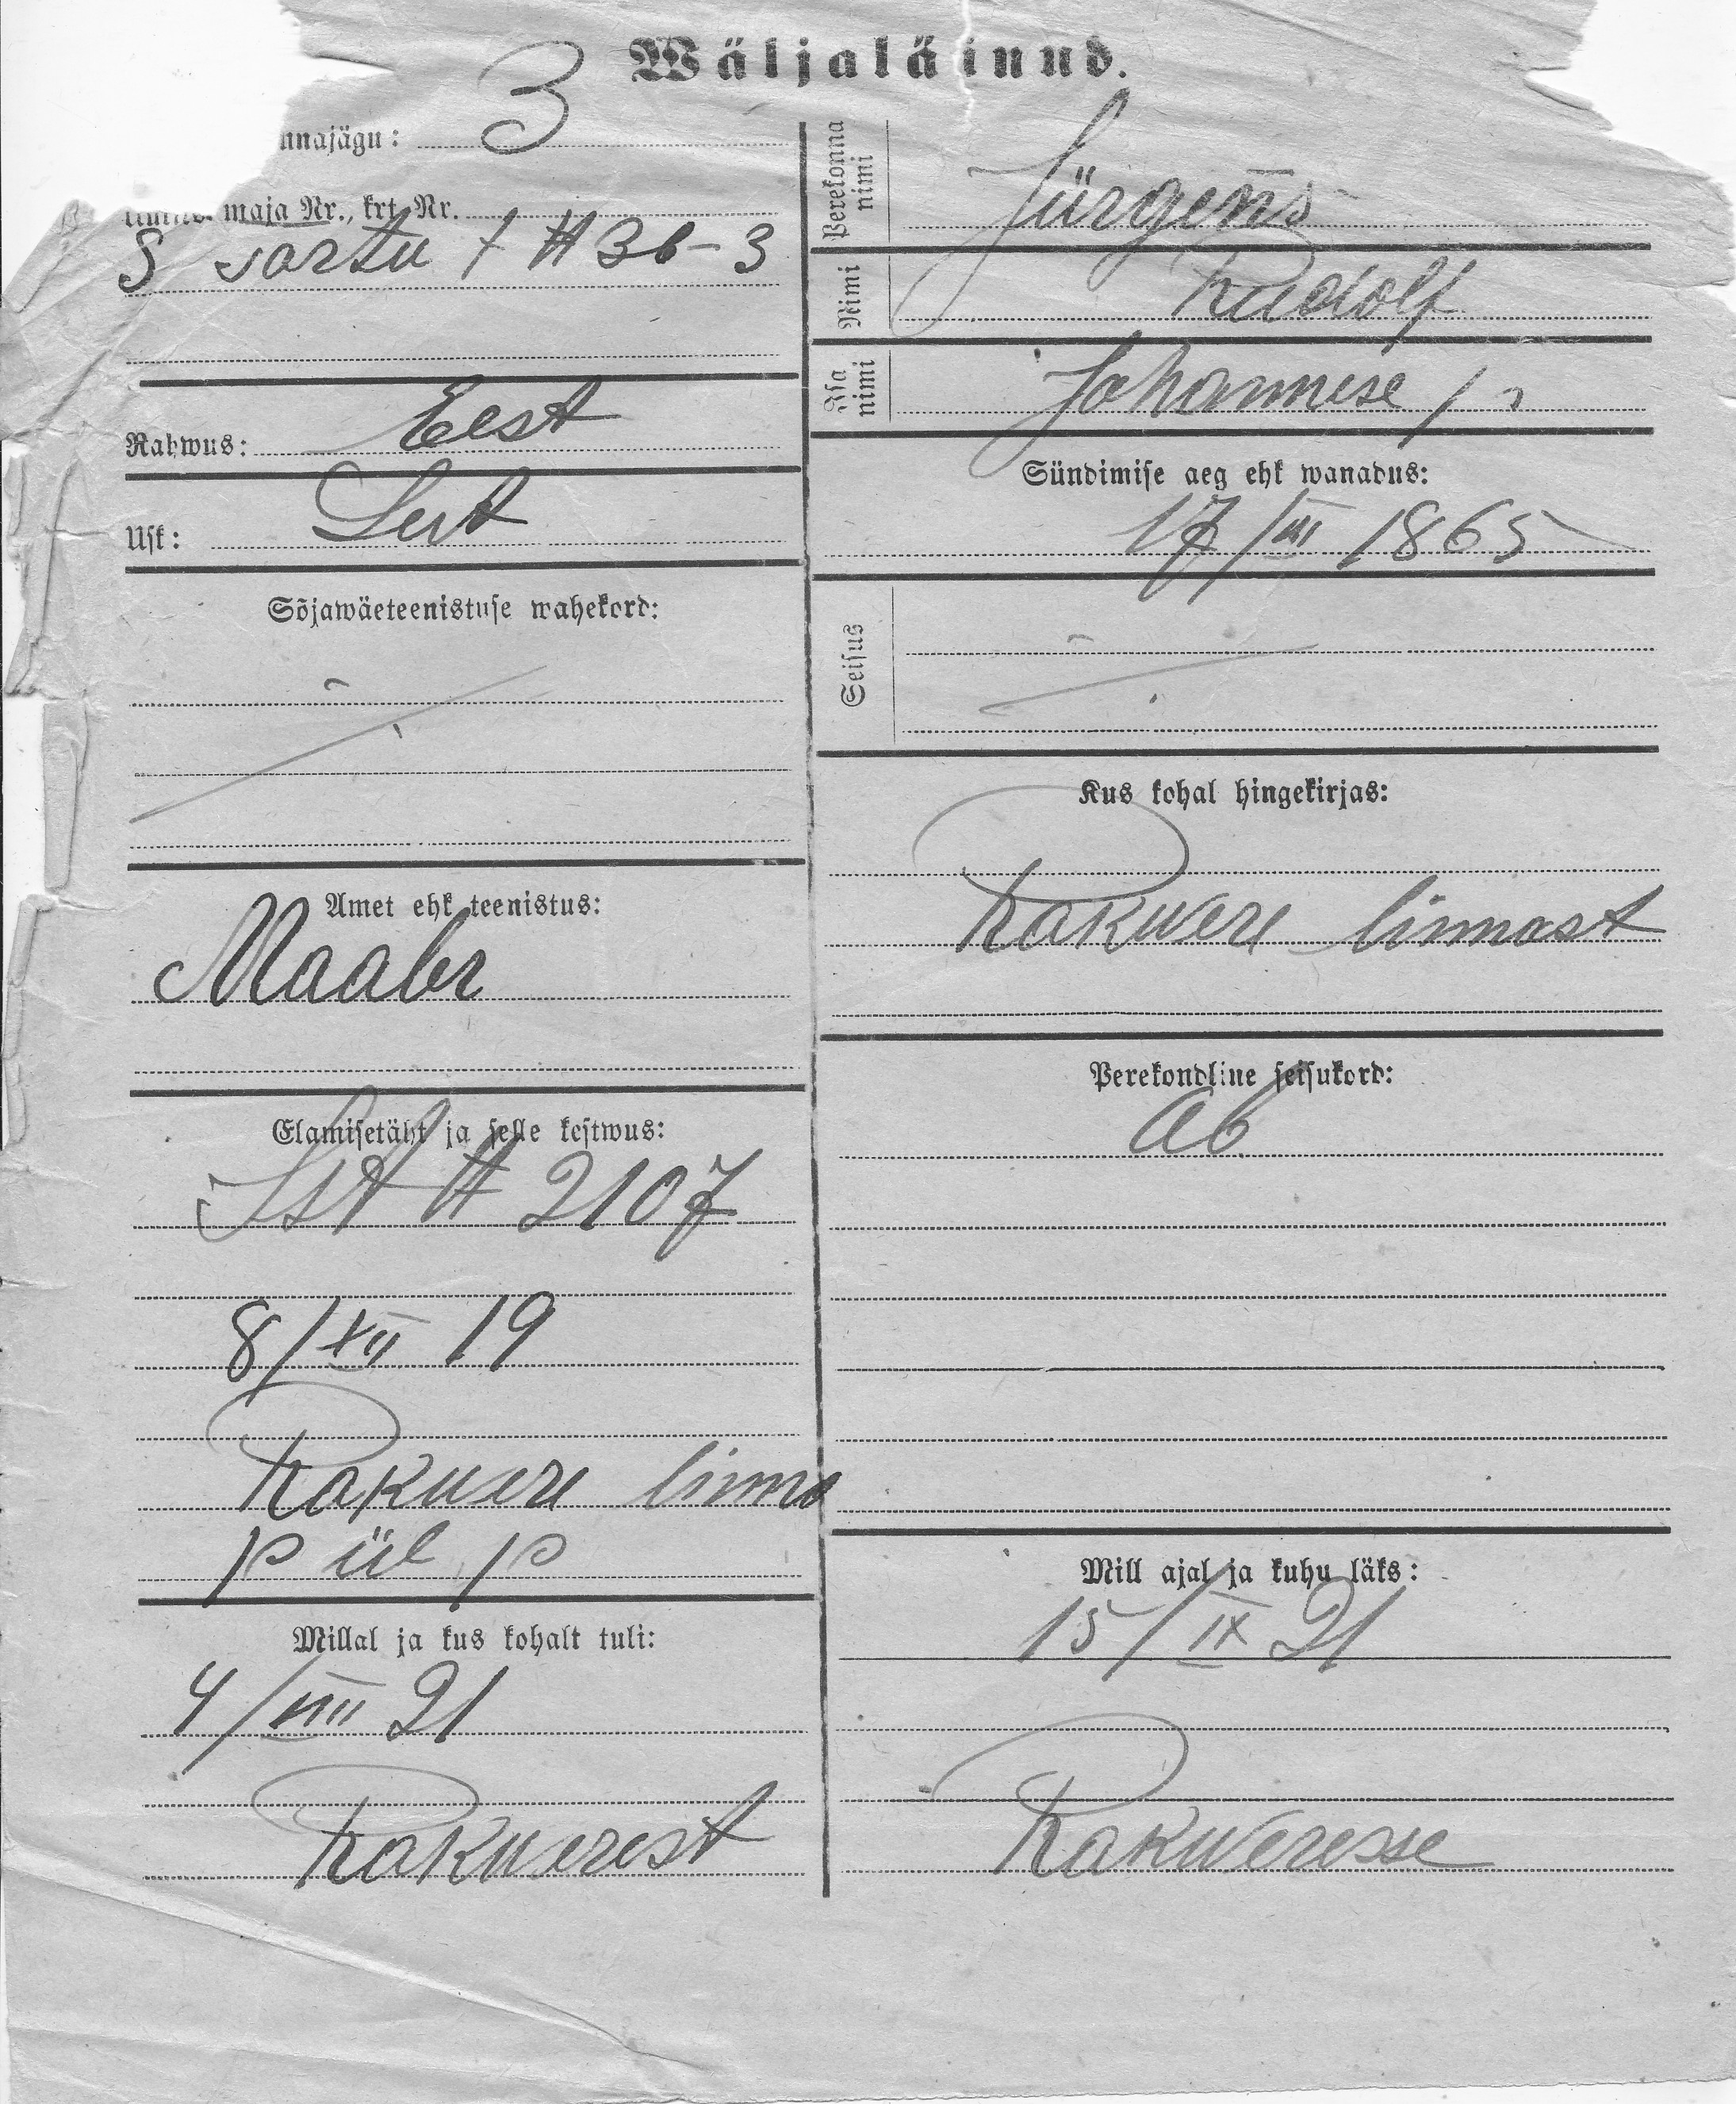 Wäljaläinud.
nnajägu: 3
maja Nr., krt. Nr.
S Tartu t # 36-3
Rahwus: Eest
Usk: Lut
Sõjawäeteenistuse wahekord:
Amet ehk teenistus:
Maaler
Elamisetäht ja selle kestwus:
Ist # 2107
8/XII 19
Rakwere linna
p ül p
Millal ja kus kohalt tuli:
4/VIII 21
Rakwerest
Perekonna nimi
Jürgens
Nimi
Rudolf
Isa nimi
Johannese p
Sündimise aeg ehk wanadus:
17/III 1865
Seisus
Kus kohal hingekirjas:
Rakwere linnast
Perekondline seisukord:
ab.
Mill ajal ja kuhu läks:
15/IX 21
Rakweresse